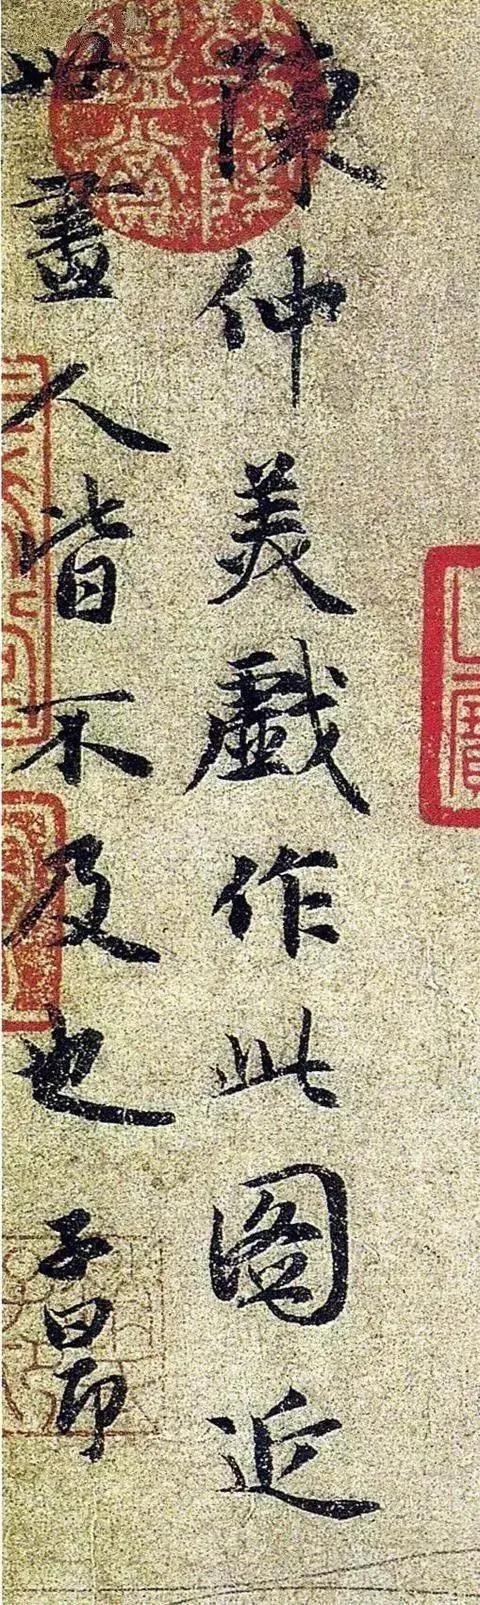 陳仲美戲作此圖近
世畫人皆不及也子昂